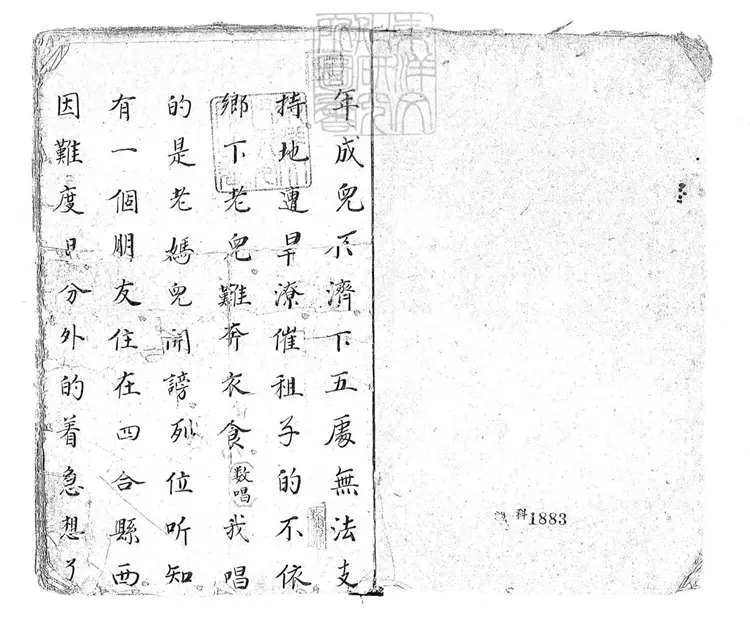 東洋文
化研究
所圖書
年成兒不濟下五處無法支
持地遭旱潦催租子的不依
鄉下老兒難奔衣食數唱我唱
的是老媽兒開謗列位听知
有一個朋友住在四合縣西
因難度日分外的着急想了
科1883